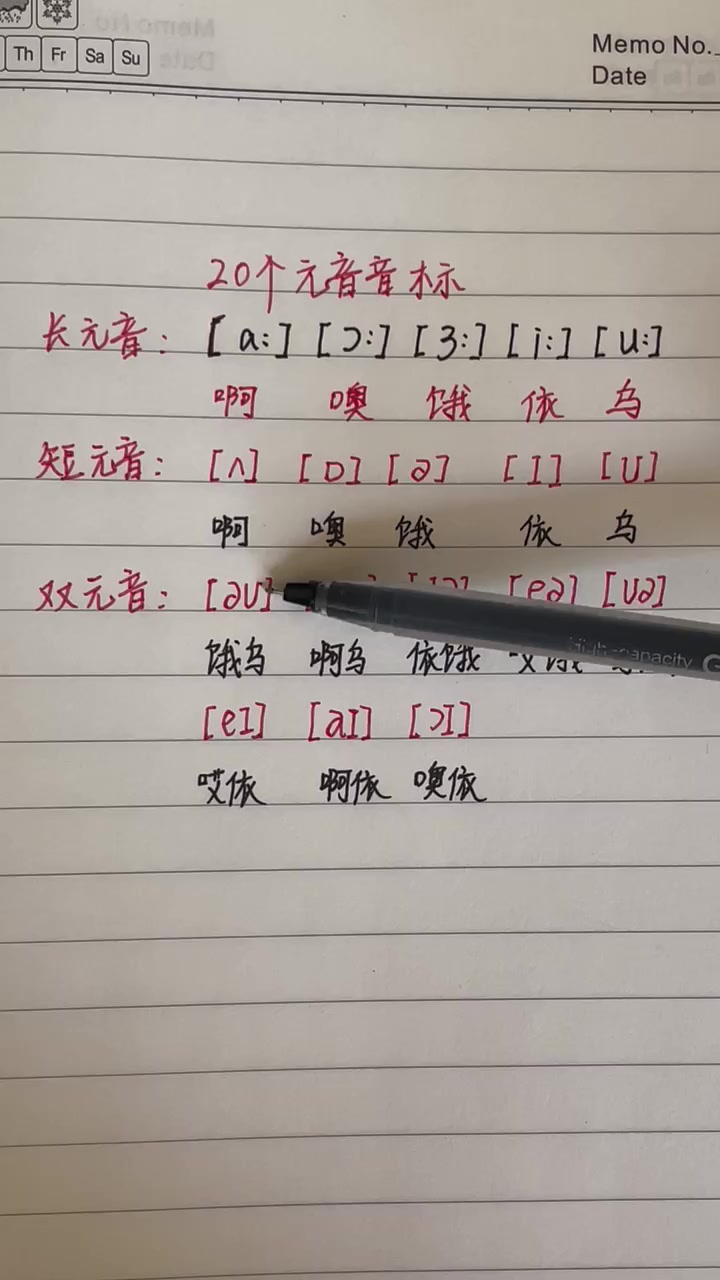 Th Fr Sa Su
Memo No.
Date
20个元音音标
长元音: [a:] [ɔ:] [ɜ:] [i:] [u:]
啊 噢 饿 依 乌
短元音: [ʌ] [ɒ] [ə] [ɪ] [ʊ]
啊 噢 饿 依 乌
双元音: [əʊ] [eə] [ʊə]
饿乌 啊乌 依饿
[eɪ] [aɪ] [ɔɪ]
哎依 啊依 噢依
capacity